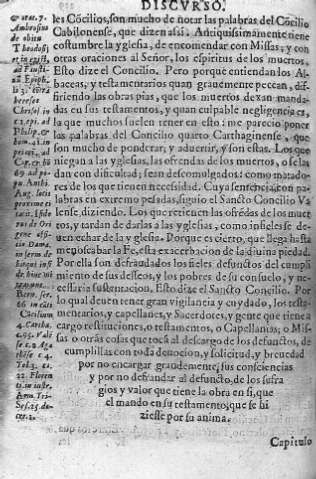 DISCVRSO.
les Cõcilios, son mucho de notar las palabras del Cõcilio
Cabilonense, que dizen assi. Antiquissimamente tiene
costumbre la yglesia, de encomendar con Missas, y con
otras oraciones al Señor, los espiritus de los muertos.
Esto dize el Concilio. Pero porque entiendan los Al-
baceas, y testamentarios quan grauemente peccan, dif-
firiendo las obras pias, que los muertos dexan manda-
das en sus testamentos, y quan culpable negligencia es,
la que muchos suelen tener en esto: me parecio poner
las palabras del Concilio quarto Carthaginense, que
son mucho de ponderar, y aduertir, y son estas. Los que
niegan a las yglesias, las ofrendas de los muertos, o se las
dan con dificultad; sean descomulgados: como matado-
res de los que tienen necesidad. Cuya sentencia, con pa-
labras en extremo pesadas, siguio el Sancto Concilio Va
lense, diziendo. Los que retienen las ofrẽdas de los muer
tos, y tardan de darlas a las yglesias, como infieles se de-
uen echar de la yglesia. Porque es cierto, que llega hasta
menoscabar la Fe, esta exacerbacion de la diuina piedad.
Por ella son defraudados los fieles defunctos del cumpli
miento de sus desseos, y los pobres de su consuelo, y ne-
cessaria sustentacion. Esto dize el Sancto Concilio. Por
lo qual deuen tener gran vigilancia y cuydado, los testa-
mentarios, y capellanes, y Sacerdotes, y gente que tiene a
cargo restituciones, o testamentos, o Capellanias; o Mis-
sas o otras cosas que toca al descargo de los defunctos, de
cumplillas con toda deuocion, y solicitud, y breuedad
por no encargar grandemente, sus consciencias
y por no defraudar al defuncto, de los sufra
gios y valor que tiene la obra en si, que
el mando en su testamento, que se hi
ziesse por su anima.
Capitulo
Ambrosius
de obitu
Theodosij
Aug. locis
proxime ci
Bern. ser.
66 in cãt.
Cæcilium
4. Cartha.
c. 95. Valẽ
se c. 2 Aga
thẽse c. 4
Tol. 3. c.
22. Floren
ti. in instr.
Arm. Tri-
Ses. 25. de-
cre. 2.